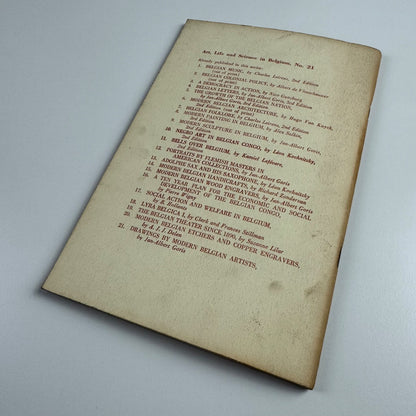 Art, Life and Science in Belgium, No. 21
Already published in this series:
1. BELGIAN MUSIC, by Charles Leirens, 2nd Edition
(out of print)
2. BELGIAN COLONIAL POLICY, by Albert de Vleeschauwer
(out of print)
3. A DEMOCRACY IN ACTION, by Nico Gunzburg
4. BELGIAN LETTERS, by Jan-Albert Goris, 3rd Edition
5. THE GROWTH OF THE BELGIAN NATION,
by Jan-Albert Goris, 3rd Edition
6. MODERN BELGIAN ARCHITECTURE, by Hugo Van Kuyck,
3rd Edition
7. BELGIAN FOLKLORE, by Charles Leirens, 2nd Edition
8. MODERN PAINTING IN BELGIUM, by Alex Salkin,
(out of print)
9. MODERN SCULPTURE IN BELGIUM, by Jan-Albert Goris,
2nd Edition
10. NEGRO ART IN BELGIAN CONGO, by Léon Kochnitzky,
3rd Edition
11. BELLS OVER BELGIUM, by Kamiel Lefévere
12. PORTRAITS BY FLEMISH MASTERS IN
AMERICAN COLLECTIONS, by Jan-Albert Goris
13. ADOLPHE SAX AND HIS SAXOPHONE, by Léon Kochnitzky
14. MODERN BELGIAN HANDICRAFTS, by Richard Lenderson
15. MODERN BELGIAN WOOD ENGRAVERS, by Jan-Albert Goris
16. A TEN YEAR PLAN FOR THE ECONOMIC AND SOCIAL
DEVELOPMENT OF THE BELGIAN CONGO,
by Pierre Wigny
17. SOCIAL ACTION AND WELFARE IN BELGIUM,
by B. Hollants
18. LYRA BELGICA I, by Clark and Frances Stillman
19. THE BELGIAN THEATER SINCE 1890, by Suzanne Lilar
20. MODERN BELGIAN ETCHERS AND COPPER ENGRAVERS,
by A. J. J. Delen
21. DRAWINGS BY MODERN BELGIAN ARTISTS,
by Jan-Albert Goris